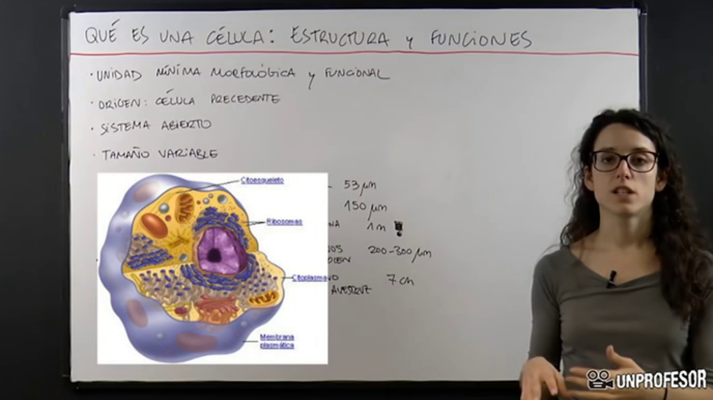 QUÉ ES UNA CÉLULA: ESTRUCTURA y FUNCIONES
· UNIDAD MÍNIMA MORFOLÓGICA y FUNCIONAL
· ORIGEN: CÉLULA PRECEDENTE
· SISTEMA ABIERTO
· TAMAÑO VARIABLE
Citoesqueleto
Ribosomas
Citoplasma
Membrana
plasmática
53 µm
150 µm
1 m !
200-300 µm
7 cm
AVESTRUZ
UNPROFESOR